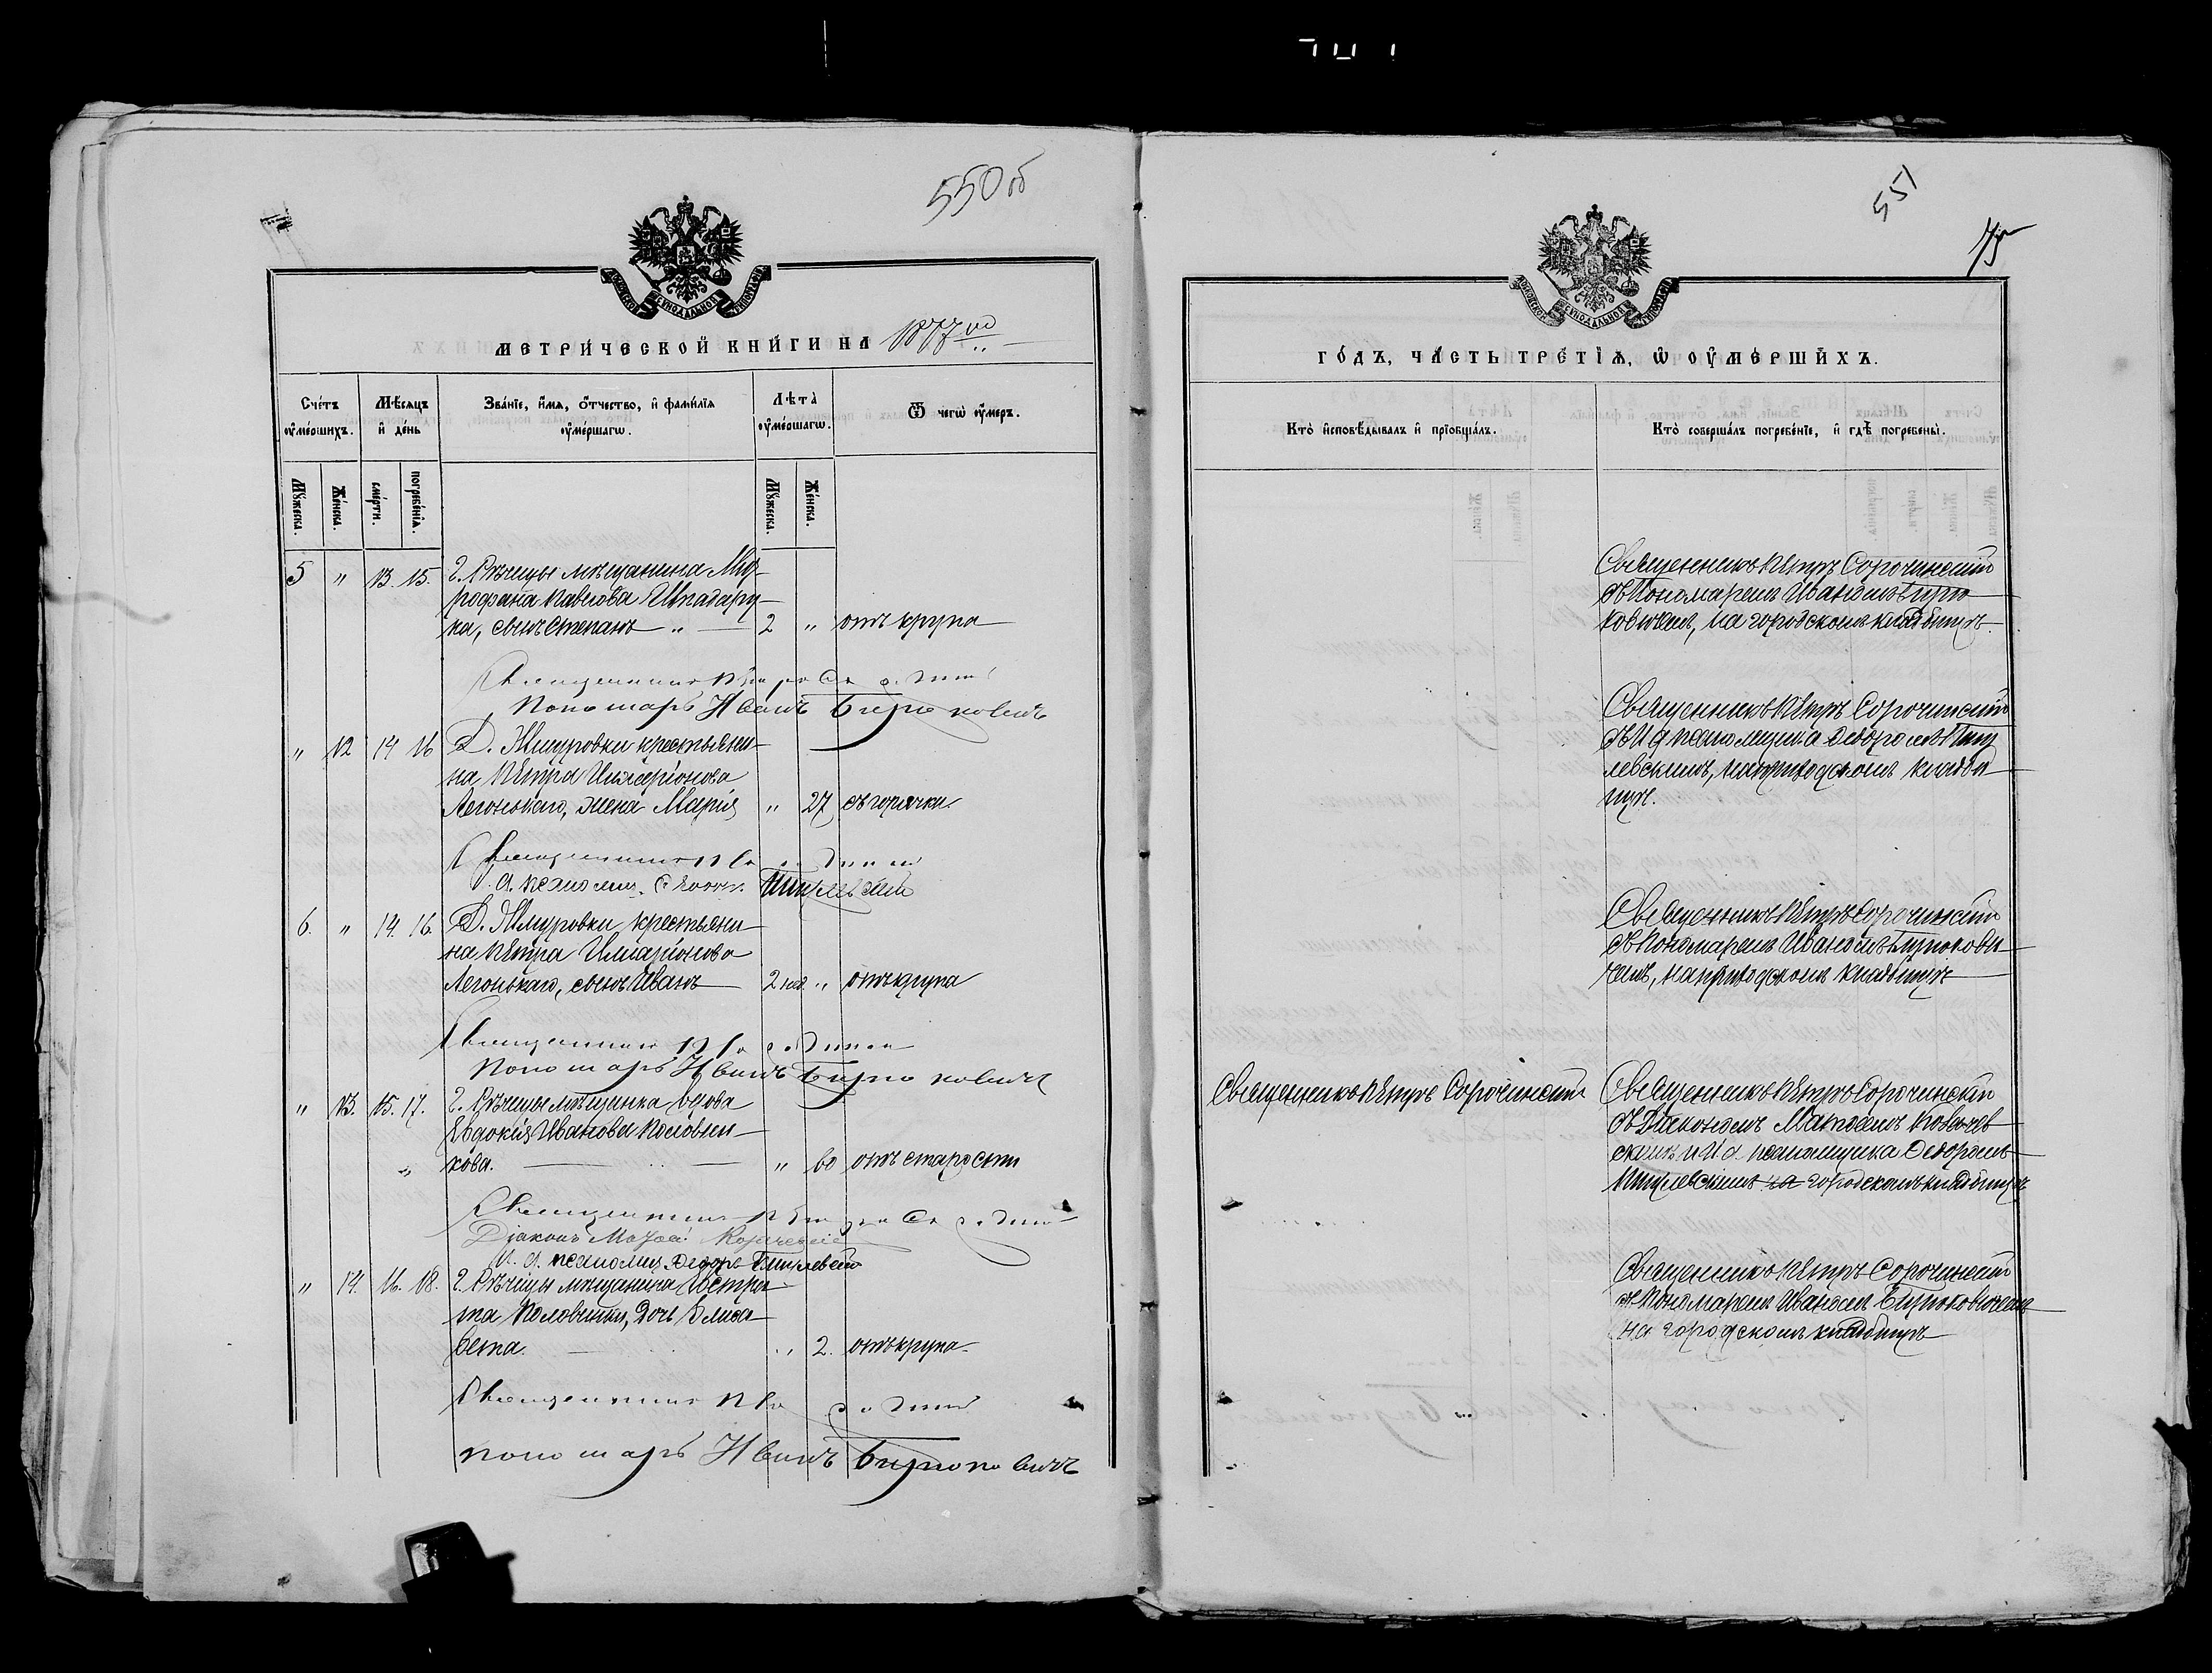 550 об
МЕТРИ́ЧЕСКОЙ КНИ́ГИ НА 1877 ой
Сче́тъ ᲂу҆ме́ршихъ.
Мѣ́сяцъ и҆ де́нь
Зва́нїе, и҆́мѧ, ѻ҆́тчество, и҆ фами́лїѧ ᲂу҆ме́ршагѡ.
Лѣ́та ᲂу҆ме́ршагѡ.
Ѿ чегѡ̀ ᲂу҆́меръ.
Мꙋ́жеска.
Же́нска.
сме́рти.
погребе́нїѧ.
Мꙋ́жеска.
Же́нска.
5 " 13. 15. Г. Рѣчицы мѣщанина Мит-
рофана Павлова Шпадару-
ка, сынъ Степанъ " — 2 " отъ крупа
Священникъ Петръ
Пономарь Иванъ Бирюковичъ
" 12 14 16 Д. Жмуровки крестьяни-
на Петра Иларіонова
Легонькаго, жена Марія " 27 съ горячки
Священникъ
псаломщ.
6. " 14. 16. Д. Жмуровки крестьяни-
на Петра Иларіонова
Легонькаго, сынъ Иванъ 2 нед. " отъ крупа
Священникъ
Пономарь Иванъ Бирюковичъ
" 13. 15. 17. Г. Рѣчицы мѣщанка вдова
Евдокія Иванова Половин-
кова. — " 60 отъ старости
Священникъ Петръ
Діаконъ Матѳей
И. д. псаломщ. Ѳедоръ
" 14. 16. 18. Г. Рѣчицы мѣщанина Евстра-
та Половинки, дочь Елиса-
вета. — " 2. отъ крупа.
Священникъ
Пономарь Иванъ Бирюковичъ
551
75
ГО́ДЪ, ЧА́СТЬ ТРЕ́ТЇѦ, Ѡ҆ ОУ҆МЕ́РШИХЪ.
Кто̀ и҆сповѣ́дывалъ и҆ прїѡбща́лъ.
Кто̀ соверша́лъ погребе́нїе, и҆ гдѣ̀ погребены̀.
Священникъ Петръ Сорочинскій
съ Пономаремъ Иваномъ Бирю-
ковичемъ, на городскомъ кладбищѣ.
Священникъ Петръ Сорочинскій
съ И д псаломщика Ѳедоромъ
левскимъ, на приходскомъ кладби-
щѣ.
Священникъ Петръ Сорочинскій
съ Пономаремъ Иваномъ Бирюкови-
чемъ, на приходскомъ кладбищѣ
Священникъ Петръ Сорочинскій
Священникъ Петръ Сорочинскій
съ Діакономъ Матѳеемъ
скимъ и И д. псаломщика Ѳедоромъ
на городскомъ кладбищѣ
Священникъ Петръ Сорочинскій
съ Пономаремъ Иваномъ Бирюковичемъ
на городскомъ кладбищѣ